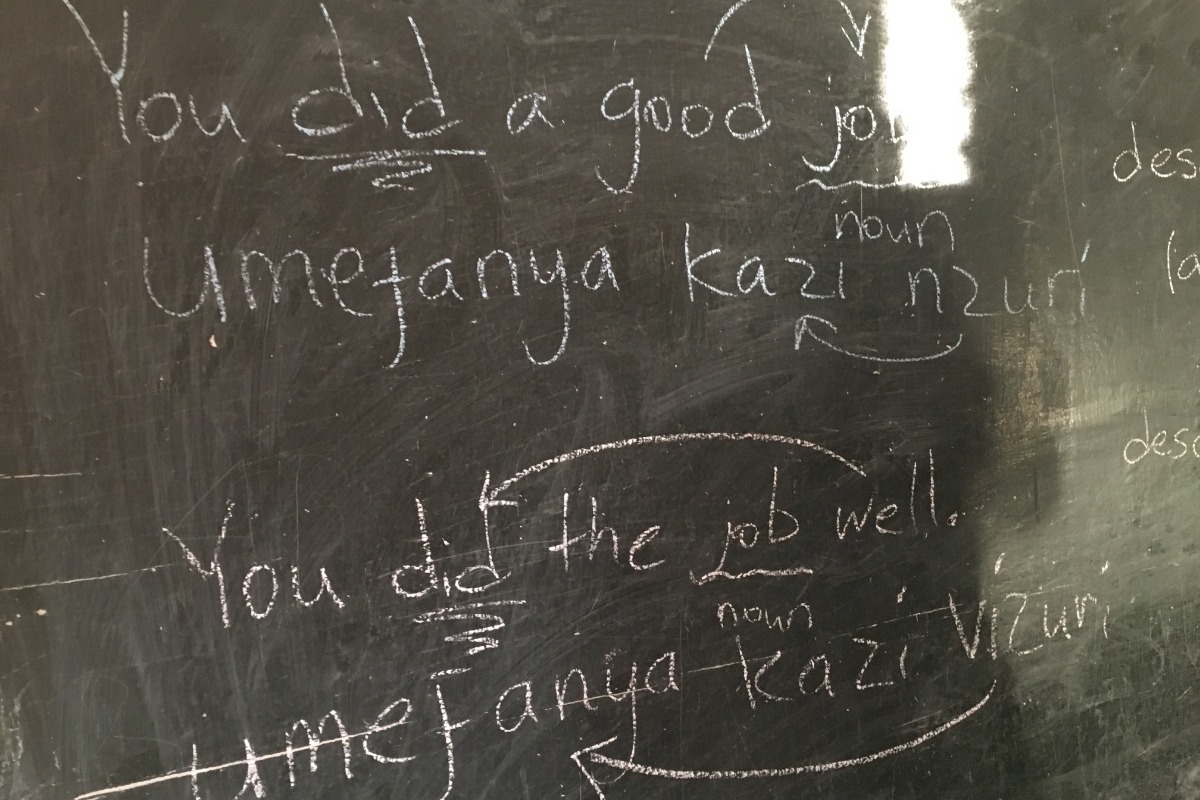 You did a good
des
noun
Umefanya kazi nzuri
la
desc
You did the job well.
noun
Umefanya kazi vizuri